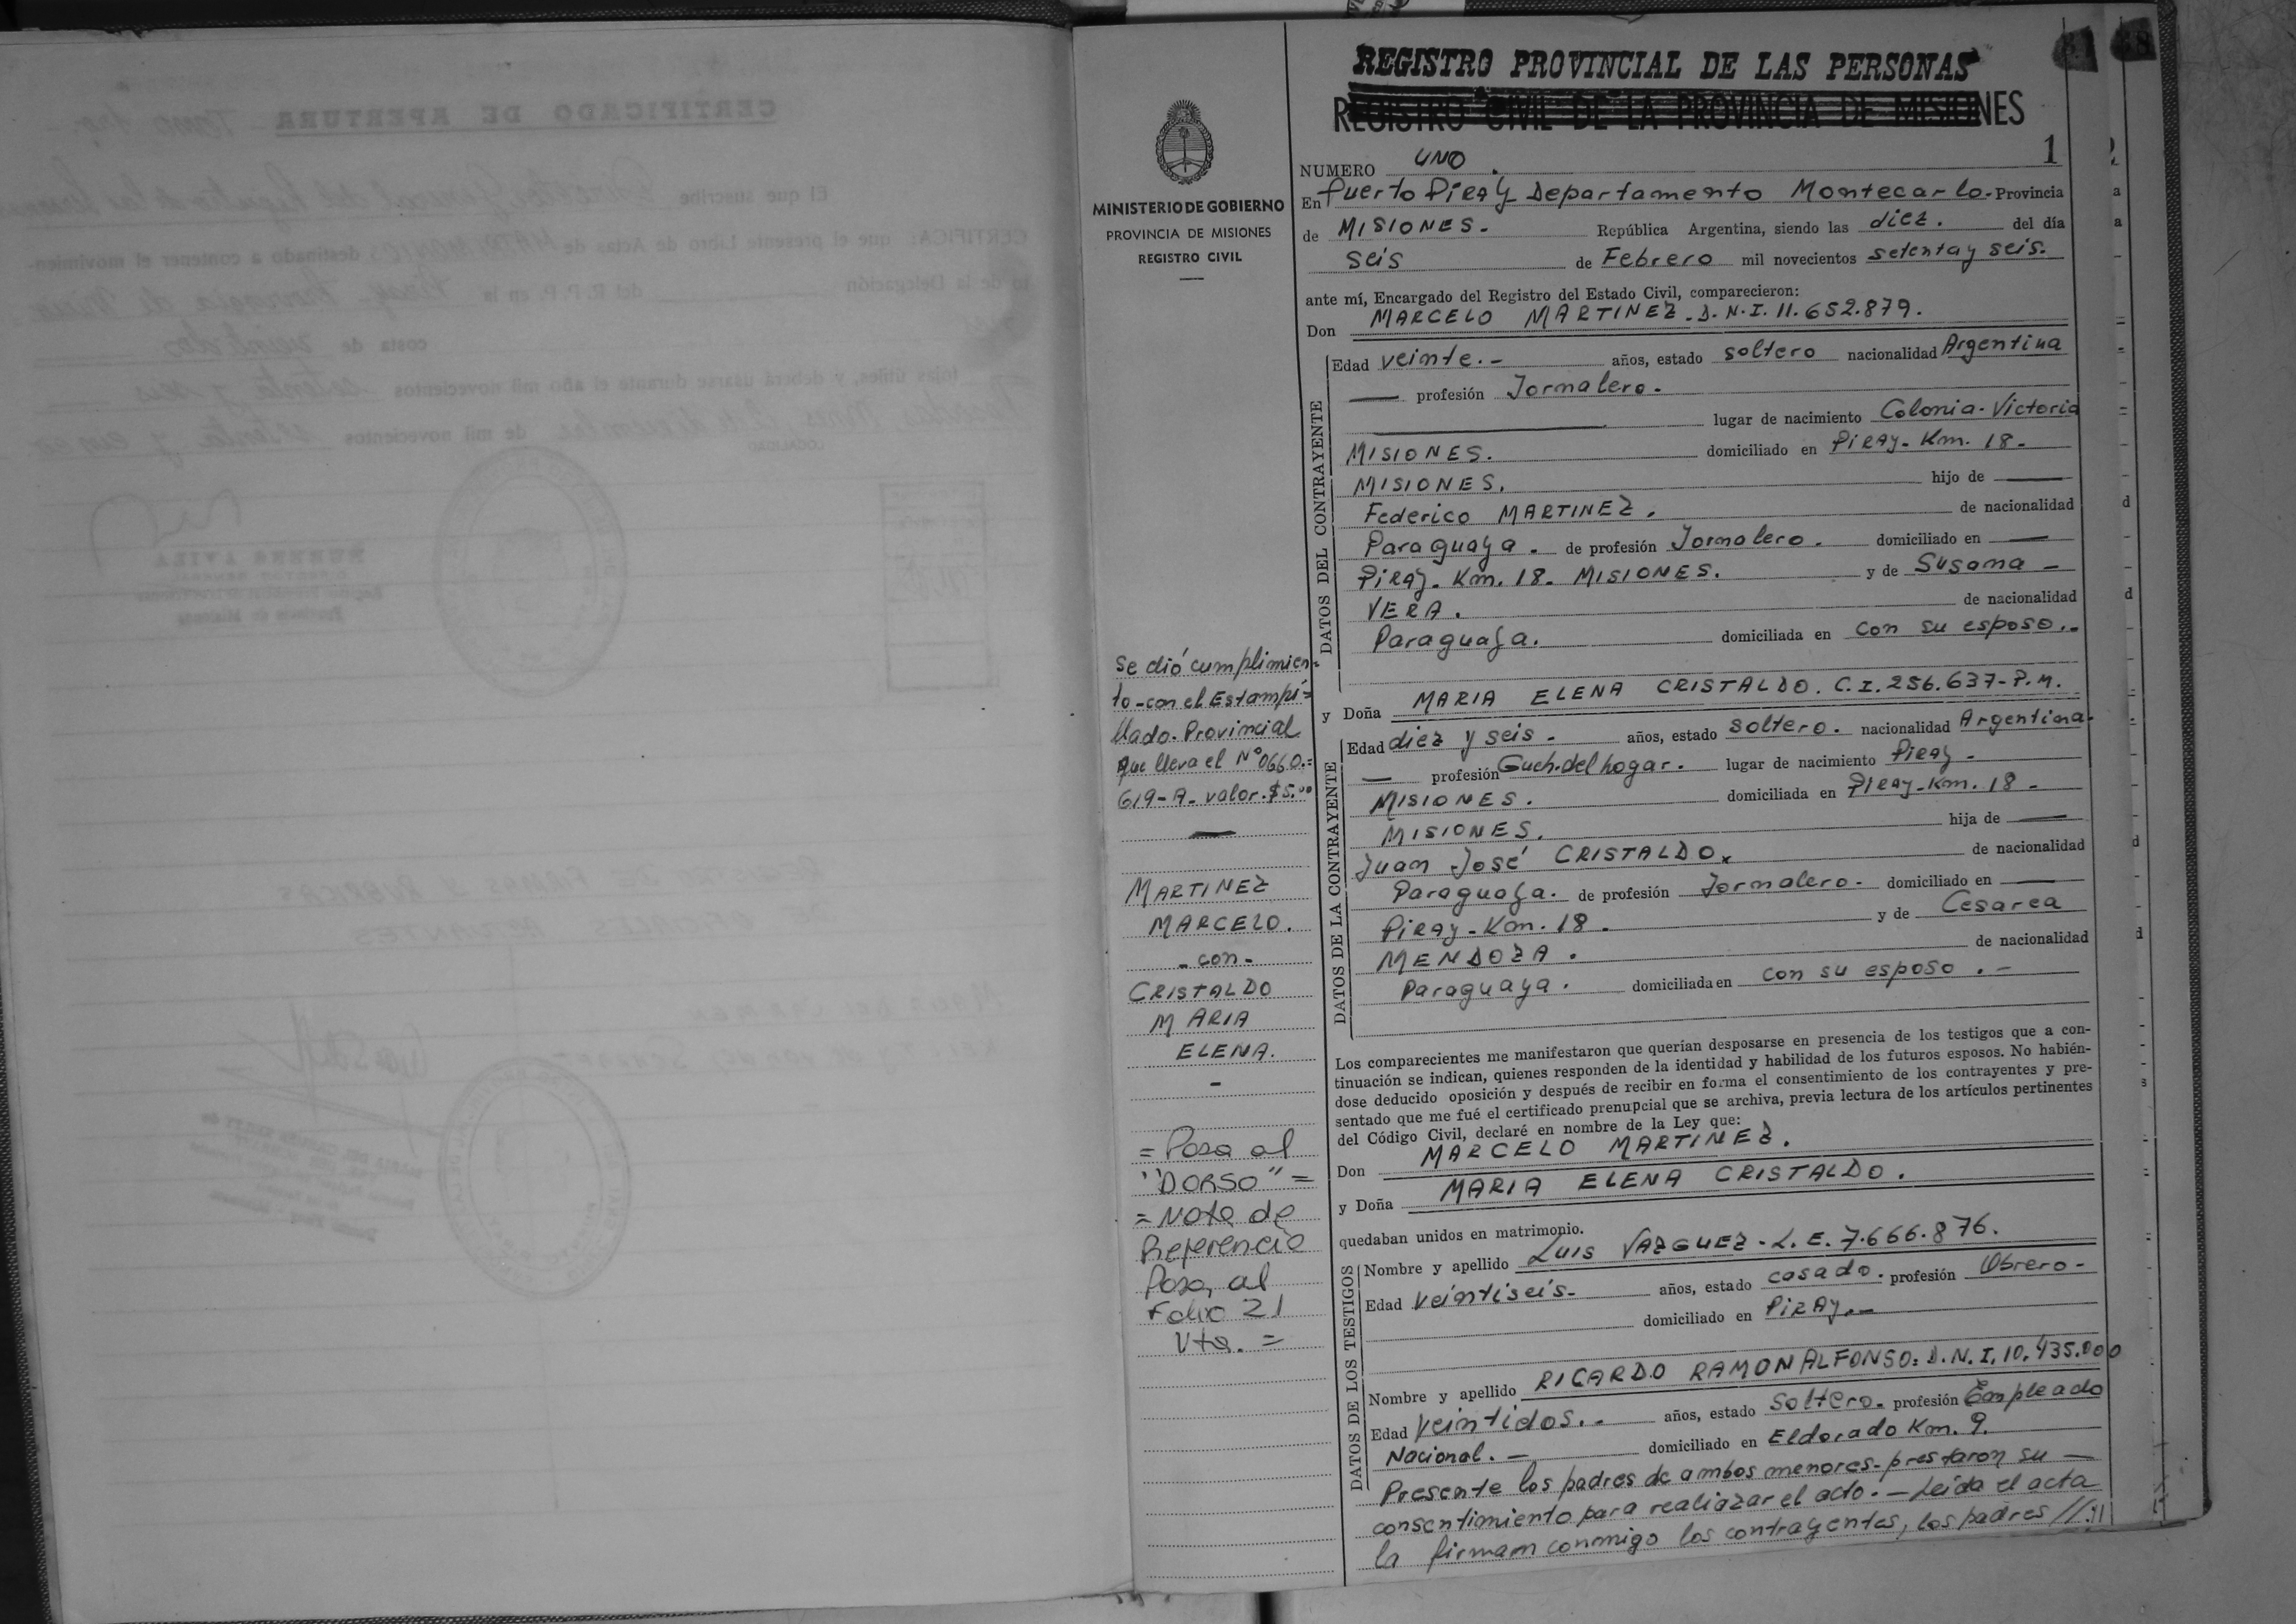 REGISTRO PROVINCIAL DE LAS PERSONAS
REGISTRO CIVIL DE LA PROVINCIA DE MISIONES
1
MINISTERIO DE GOBIERNO
PROVINCIA DE MISIONES
REGISTRO CIVIL
NUMERO UNO.
En Puerto Piray Departamento Montecarlo. Provincia
de MISIONES.- República Argentina, siendo las diez. del día
seis de Febrero mil novecientos setenta y seis.
ante mí, Encargado del Registro del Estado Civil, comparecieron:
Don MARCELO MARTINEZ. D.N.I. 11.652.879.
DATOS DEL CONTRAYENTE
Edad veinte.- años, estado soltero nacionalidad Argentina
— profesión Jornalero.
lugar de nacimiento Colonia-Victoria
MISIONES. domiciliado en Piray- Km. 18.
MISIONES. hijo de —
Federico MARTINEZ. de nacionalidad
Paraguaya. de profesión Jornalero. domiciliado en —
Piray- Km. 18. MISIONES. y de Susana -
VERA. de nacionalidad
Paraguaya. domiciliada en con su esposo..
y Doña MARIA ELENA CRISTALDO. C.I. 256.637-P.M.
DATOS DE LA CONTRAYENTE
Edad diez y seis - años, estado soltero. nacionalidad Argentina.
— profesión Queh.del hogar. lugar de nacimiento Piray -
MISIONES. domiciliada en Piray-Km. 18 -
MISIONES. hija de —
Juan José CRISTALDO. de nacionalidad
Paraguaya. de profesión Jornalero. domiciliado en —
Piray-Km. 18. y de Cesarea
MENDOZA. de nacionalidad
Paraguaya. domiciliada en con su esposo.-
Los comparecientes me manifestaron que querían desposarse en presencia de los testigos que a con-
tinuación se indican, quienes responden de la identidad y habilidad de los futuros esposos. No habién-
dose deducido oposición y después de recibir en forma el consentimiento de los contrayentes y pre-
sentado que me fué el certificado prenupcial que se archiva, previa lectura de los artículos pertinentes
del Código Civil, declaré en nombre de la Ley que:
Don MARCELO MARTINEZ.
y Doña MARIA ELENA CRISTALDO.
quedaban unidos en matrimonio.
DATOS DE LOS TESTIGOS
Nombre y apellido Luis VAZQUEZ - L.E. 7.666.876.
Edad veintiseis- años, estado casado. profesión Obrero-
domiciliado en Piray.-
Nombre y apellido RICARDO RAMON ALFONSO: D.N.I. 10.435.000
Edad veintidos.- años, estado Soltero. profesión Empleado
Nacional.- domiciliado en Eldorado Km. 9.
Presente los padres de ambos menores-prestaron su —
consentimiento para realiazar el acto.- Leída el acta
la firmam conmigo los contrayentes, los padres //:
Se dió cumplimien-
to-con el Estampi=
llado. Provincial
que lleva el N° 0660.=
619-A- valor.$5.00
MARTINEZ
MARCELO.
-con-
CRISTALDO
MARIA
ELENA.
= Pasa al
"DORSO" =
= Nota de
Referencia
Pasa, al
Folio 21
Vta. =